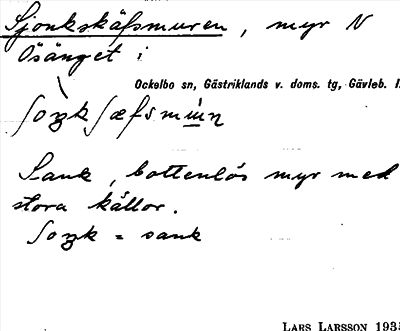 Sjonkskäfsmuren, myr N
Ösänget i
Ockelbo sn, Gästriklands v. doms. tg, Gävleb. l.
ʃoŋkʃæfsmɯ̀n
Sank, bottenlös myr med
stora källor.
ʃoŋk = sank
LARS LARSSON 1935